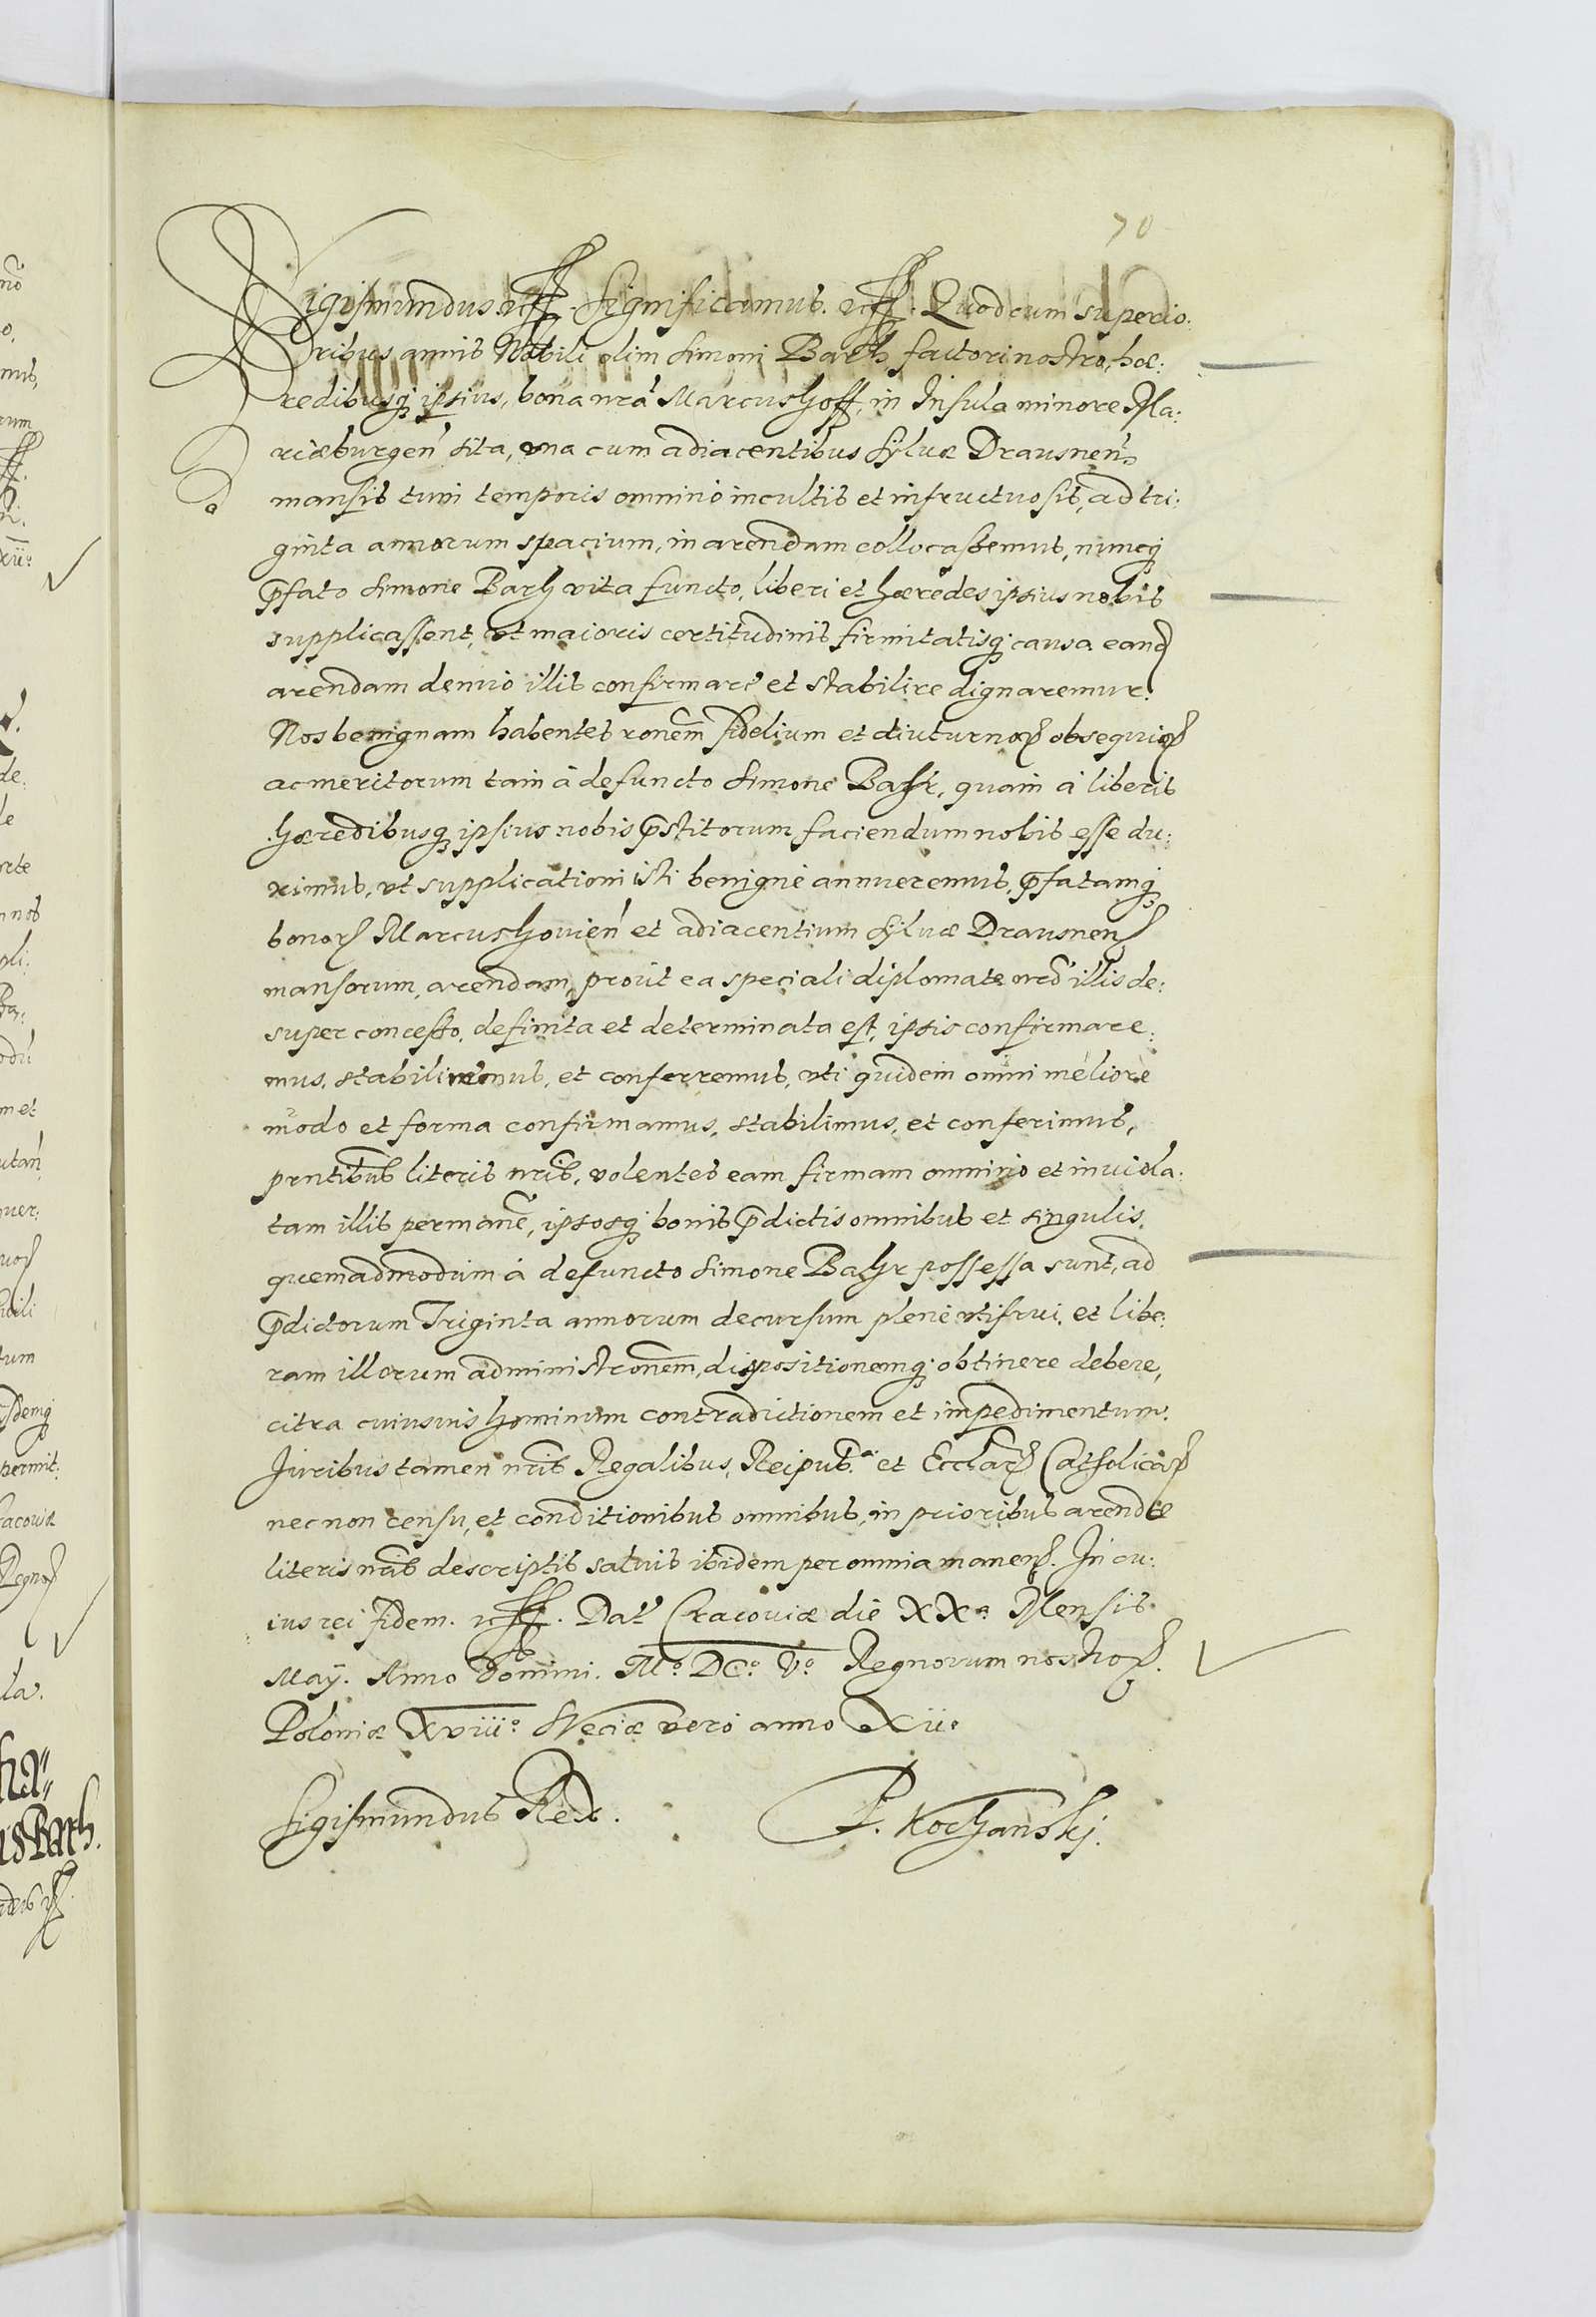 70
Sigismundus. etc. Significamus. etc. Quod cum superio:
ribus annis Nobili olim Simoni Barh factori nostro, hæ:
redibusq; ipsius, bona nrã Marcushoff, in Insula minore Ma:
riæburgeñ sita, vna cum adiacentibus Syluæ Drausneñ
mansis tum temporis omnino incultis et infructuosis, ad tri:
ginta annorum spacium, in arendam collocassemus, nuncq;
p̃fato Simone Barh vita functo, liberi et hæredes ipsius nobis
supplicassent, vt maioris certitudinis firmitatisq; causa eand
arendam denuo illis confirmare et stabilire dignaremur.
Nos benignam habentes ronem fidelium et diuturnoꝝ obsequioꝝ
ac meritorum tam à defuncto Simone Bahr, quam à liberis
hæredibusq; ipsius nobis p̃stitorum faciendum nobis esse du:
ximus, vt supplicationi isti benigne annueremus, p̃fatamq;
bonoꝝ Marcushouieñ et adiacentium Syluæ Drausneñ
mansorum, arendam, prout ea speciali diplomate nrõ illis de:
super concesso, definita et determinata est, ipsis confirmare:
mus, stabiliremus, et conferremus, vti quidem omni meliore
modo et forma confirmamus, stabilimus, et conferimus,
pñtibus literis nr̃is, volentes eam firmam omnino et inuiola:
tam illis permañe, ipsosq; bonis p̃dictis omnibus et singulis,
quemadmodum à defuncto Simone Bahr possessa sunt, ad
p̃dictorum Triginta annorum decursum plene vtifrui, et libe:
ram illorum administronem, dispositionemq; obtinere debere,
citra cuiusuis hominum contradictionem et impedimentum.
Iuribus tamen nr̃is Regalibus, Reipub.ᵃᵉ et Ecclaꝝ Catholicaꝝ
nec non censu, et conditionibus omnibus, in prioribus arendæ
literis nr̃is descriptis saluis ibidem per omnia maneñ. In cu:
ius rei fidem. etc. Dat̃ Cracouiæ die XXᵃ Mensis
Maÿ. Anno Domini. Mº. DCº. Vº Regnorum nostroꝝ.
Poloniæ XViiiº Sueciæ vero anno Xiiº
Sigismundus Rex.
P. Kochanskj.